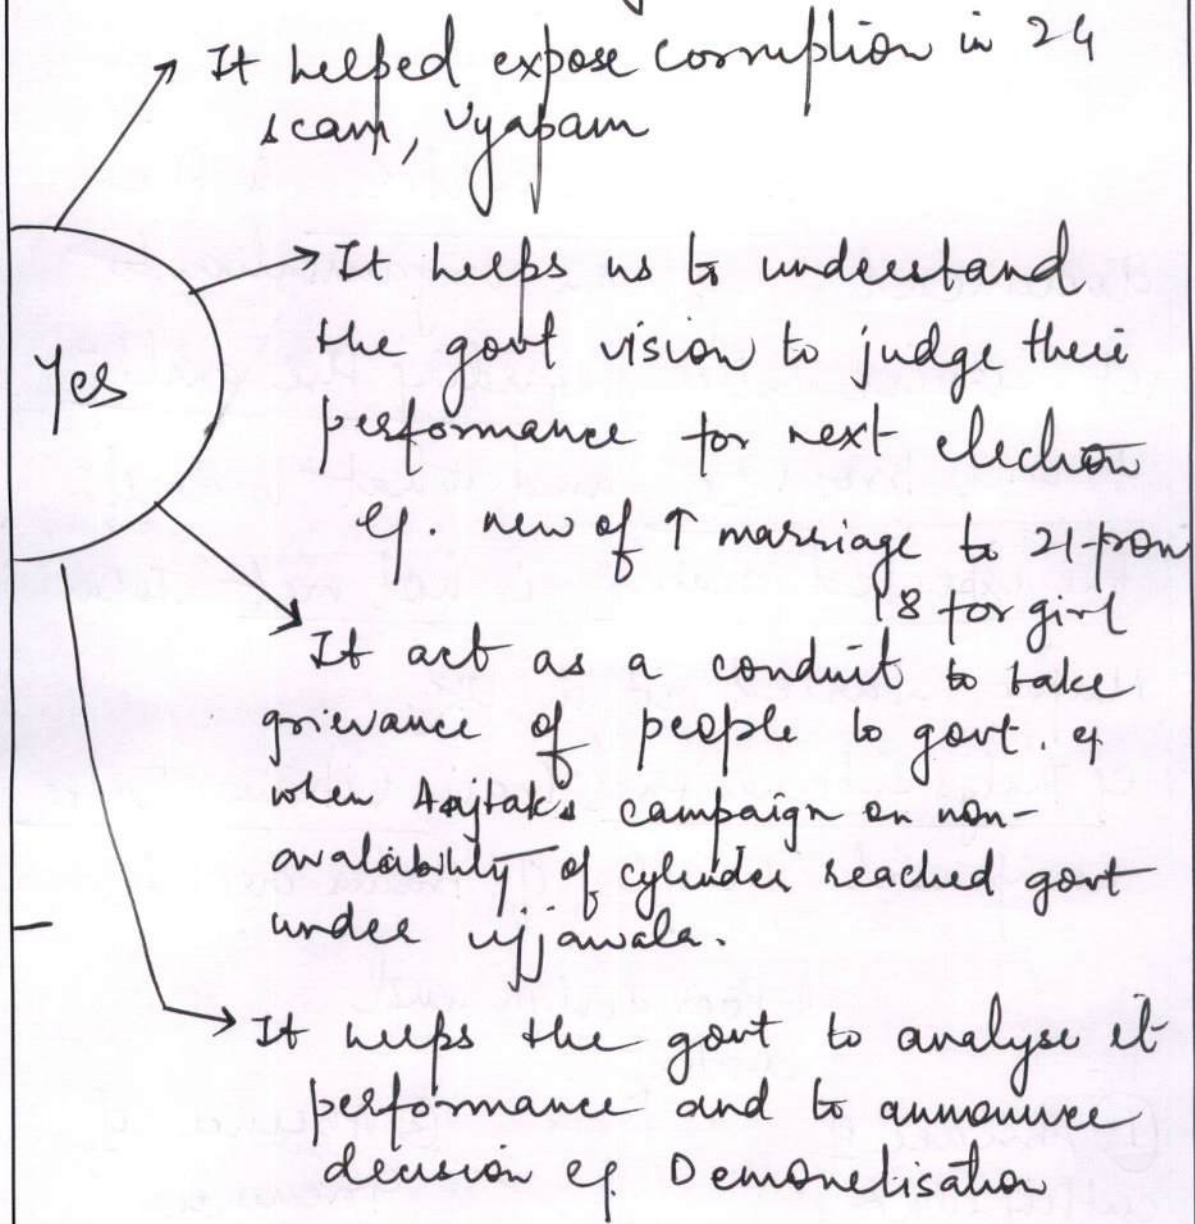 It helped expose corruption in 2G
scam, Vyapam
Yes
It helps us to understand
the govt vision to judge their
performance for next election
eg. new of ↑ marriage to 21 from
18 for girl
It act as a conduit to take
grievance of people to govt. eg
when Aajtak's campaign on non-
avalaibility of cylinder reached govt
under ujjawala.
It helps the govt to analyse it
performance and to announce
decision eg. Demonetisation